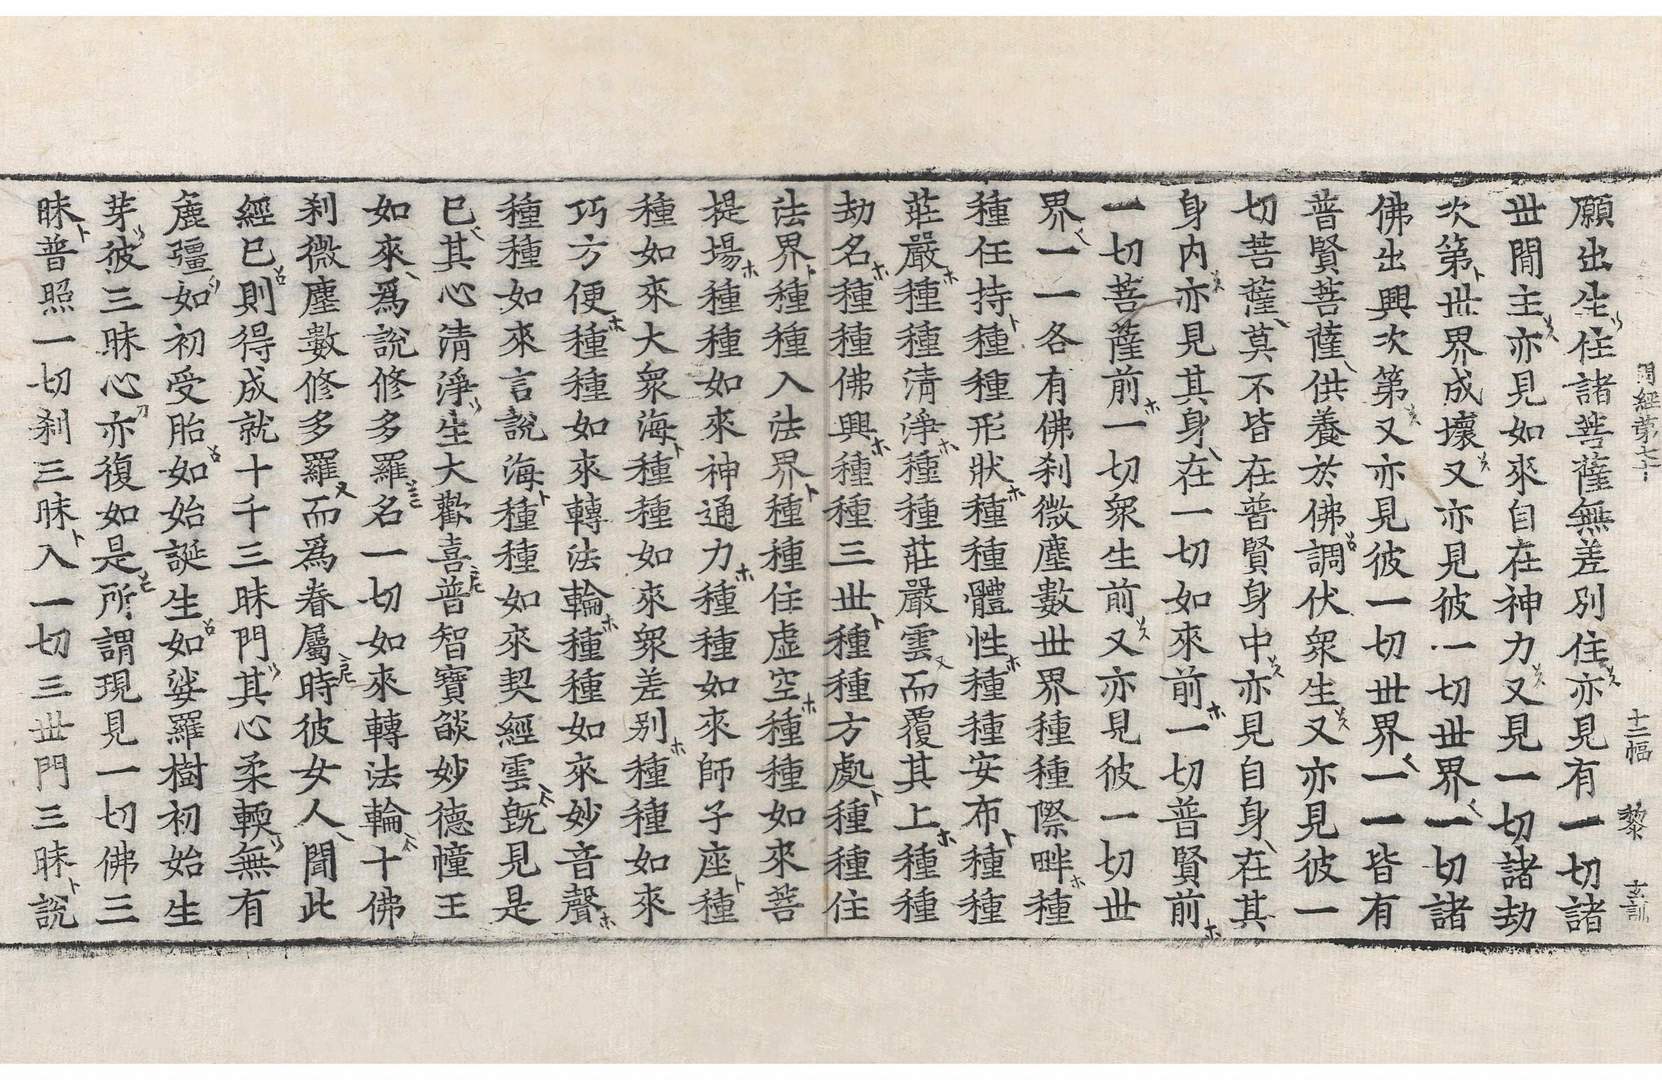 周經第七十 十二幅 藜 玄訓
願出生住諸菩薩無差別住亦見有一切諸
世閒主亦見如來自在神力又見一切諸劫
次第世界成壞又亦見彼一切世界一切諸
佛出興次第又亦見彼一切世界一一皆有
普賢菩薩供養於佛調伏衆生又亦見彼一
切菩薩莫不皆在普賢身中亦見自身在其
身內亦見其身在一切如來前一切普賢前
一切菩薩前一切衆生前又亦見彼一切世
界一一各有佛刹微塵數世界種種際畔種
種任持種種形狀種種體性種種安布種種
莊嚴種種清淨種種莊嚴雲而覆其上種種
劫名種種佛興種種三世種種方處種種住
法界種種入法界種種住虛空種種如來菩
提場種種如來神通力種種如來師子座種
種如來大衆海種種如來衆差別種種如來
巧方便種種如來轉法輪種種如來妙音聲
種種如來言說海種種如來契經雲旣見是
已其心清淨生大歡喜普智寶燄妙德幢王
如來爲說修多羅名一切如來轉法輪十佛
刹微塵數修多羅而爲眷屬時彼女人聞此
經已則得成就十千三昧門其心柔輭無有
麁彊如初受胎如始誕生如娑羅樹初始生
芽彼三昧心亦復如是所謂現見一切佛三
昧普照一切刹三昧入一切三世門三昧說